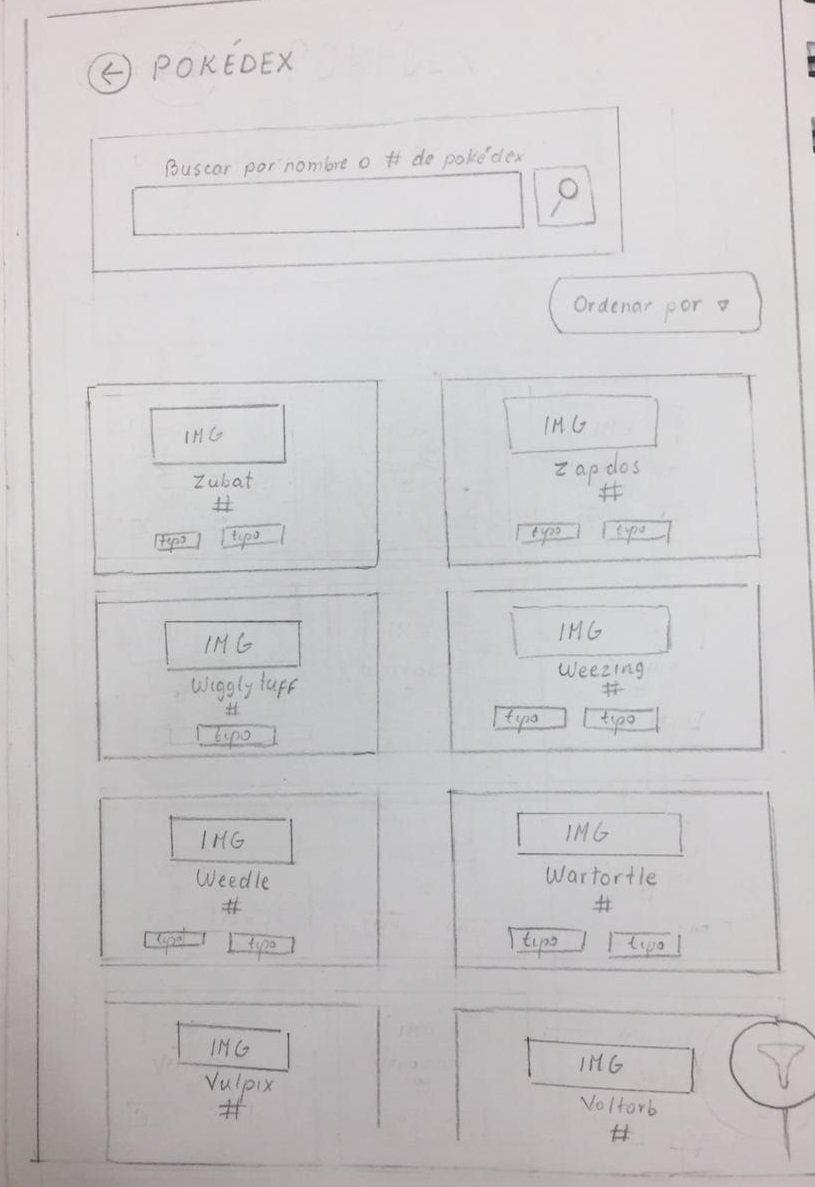 POKÉDEX
Buscar por nombre o # de pokédex
Ordenar por
IMG
Zubat
#
tipo tipo
IMG
Zapdos
#
tipo tipo
IMG
Wigglytuff
#
tipo
IMG
Weezing
#
tipo tipo
IMG
Weedle
#
tipo tipo
IMG
Wartortle
#
tipo tipo
IMG
Vulpix
#
IMG
Voltorb
#